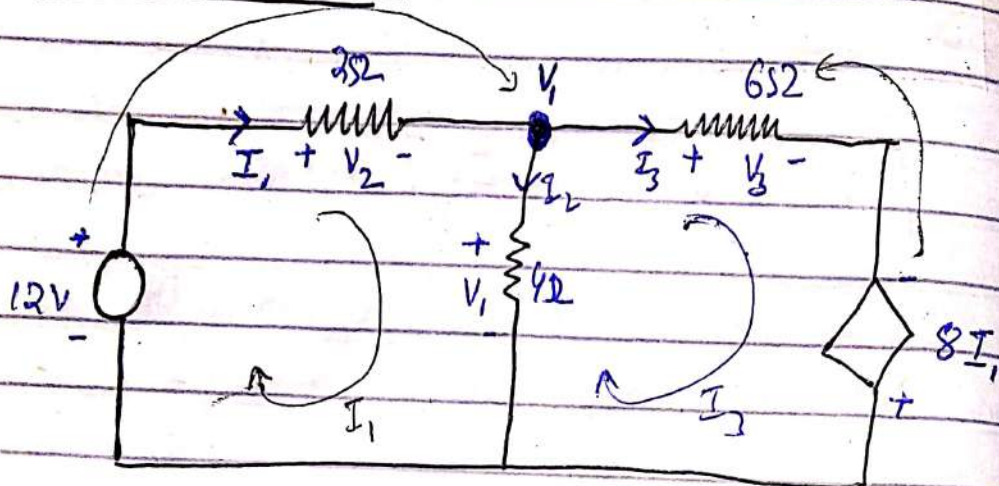 2Ω V₁ 6Ω
I₁ + V₂ - I₃ + V₃ -
I₂
+ + -
12V V₁ 4Ω 8I₁
- - +
I₁ I₃